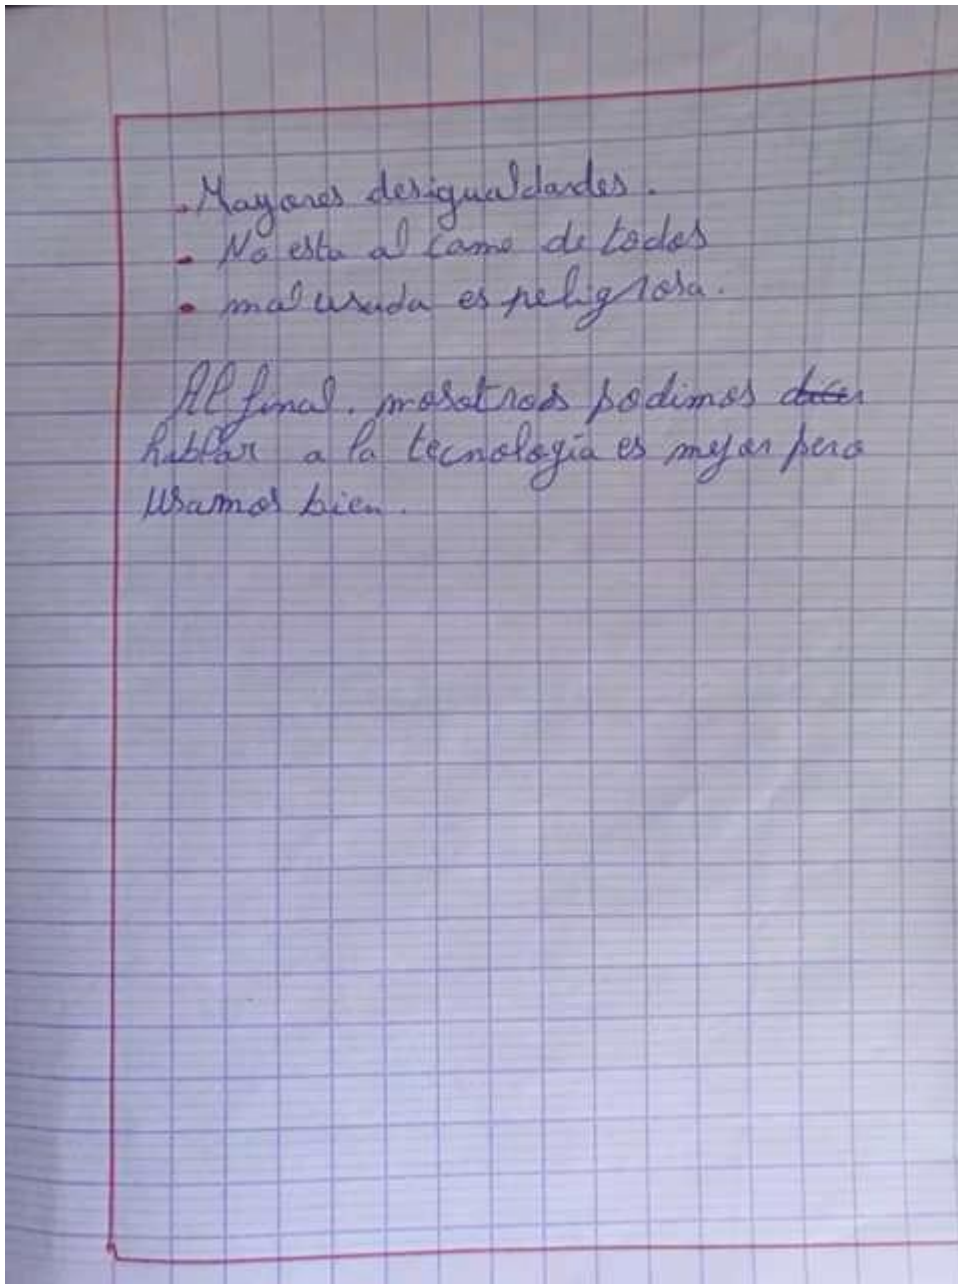 . Mayores desigualdandes.
- No esta al came de todos
• mal usada es peligrosa.
Al final. mosotros podimos dicer
hablar a la tecnologia es mejor pero
usamos bien.